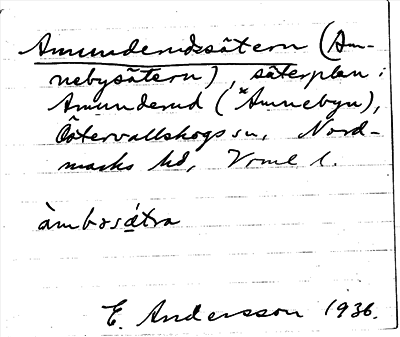 Amunderudssätern (Am-
nebysätern), säterplan i
Amunderud ("Ämnebyn),
Östervallskogs sn, Nord-
marks hd, Vrml l.
àmbosǻtra
E. Andersson 1936.